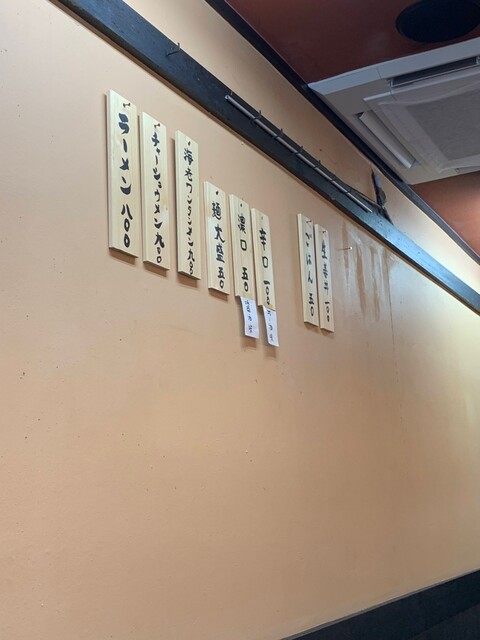 ラーメン 八〇〇
チャーシュウメン 九〇〇
海老ワンタンメン 九〇〇
麺大盛 五〇
濃口 五〇
辛口 一〇〇
ごはん 五〇